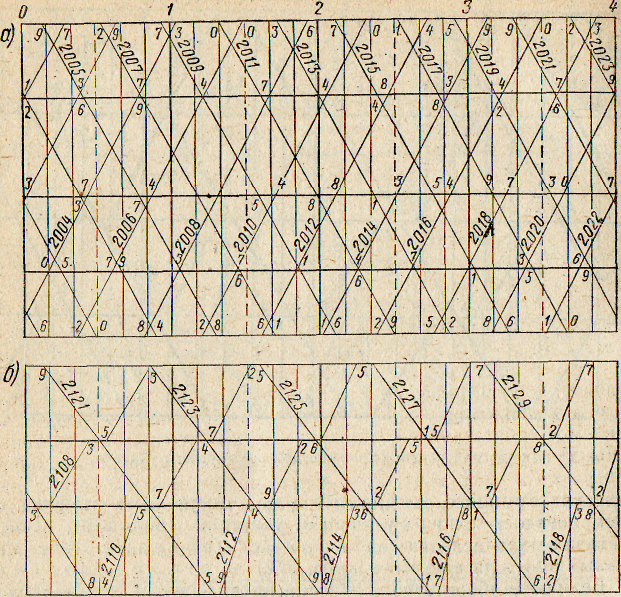 0 1 2 3 4
а) 9 7 2 9 7 3 0 0 3 6 7 0 1 4 5 9 9 0 2 3
2005 2007 2009 2011 2013 2015 2017 2019 2021 2023
1 3 7 4 7 4 8 3 4 7 9
2 6 9 4 8 2 6
3 7 4 4 8 3 5 4 9 7 3 0 7
3 7 5 8 1
2004 2006 2008 2010 2012 2014 2016 2018 2020 2022
0 5 7 9 3 7 3 6
6 6 1 5 9
6 2 0 8 4 2 8 6 1 1 6 2 9 5 2 8 6 1 0
б) 9 3 2 5 5 7 7
2121 2123 2125 2127 2129
5 7 1 5 2
3 4 2 6 5 8
2108
7 9 2 7 2
3 5 4 3 6 8 1 3 8
2110 2112 2114 2116 2118
8 4 5 9 9 8 1 7 6 2